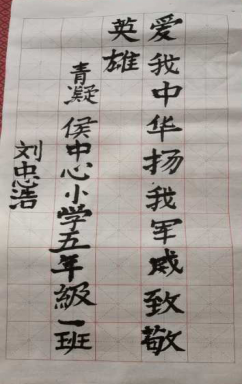 爱我中华扬我军威致敬
英雄
青凝侯中心小学五年級一班
刘忠浩